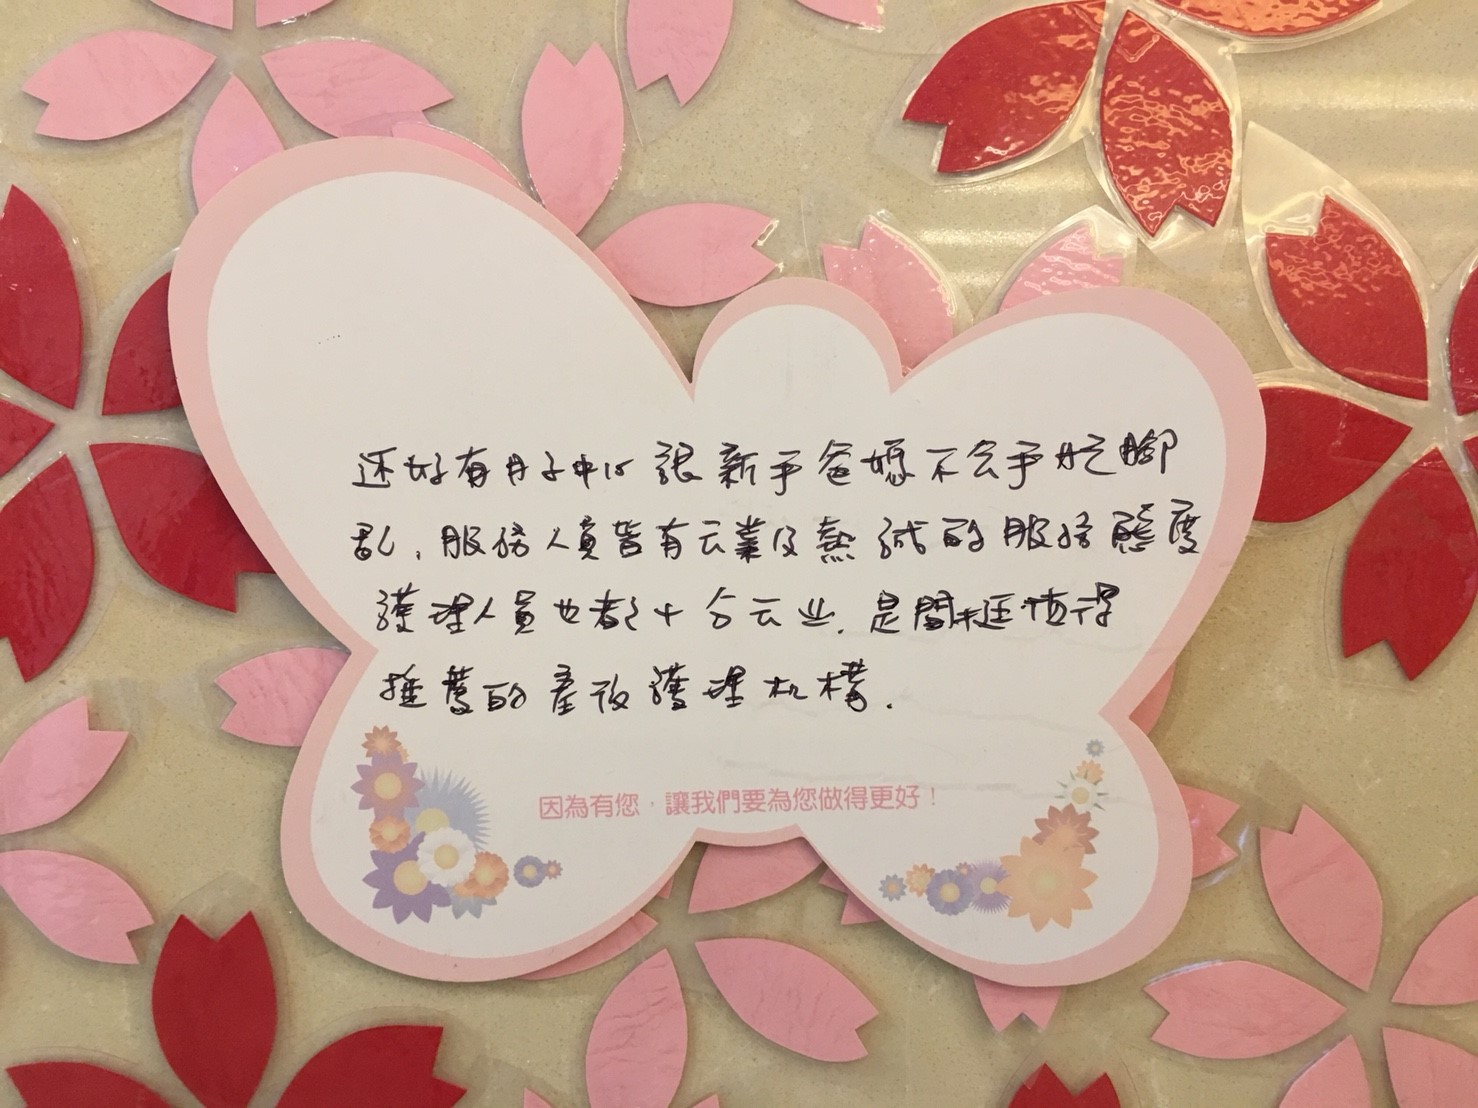 还好有月子中心 讓新手爸媽不会手忙腳
乱, 服務人員皆有专業及熱誠的服務態度
護理人員也都十分专业, 是間挺值得
推薦的產後護理机構.
因為有您，讓我們要為您做得更好！